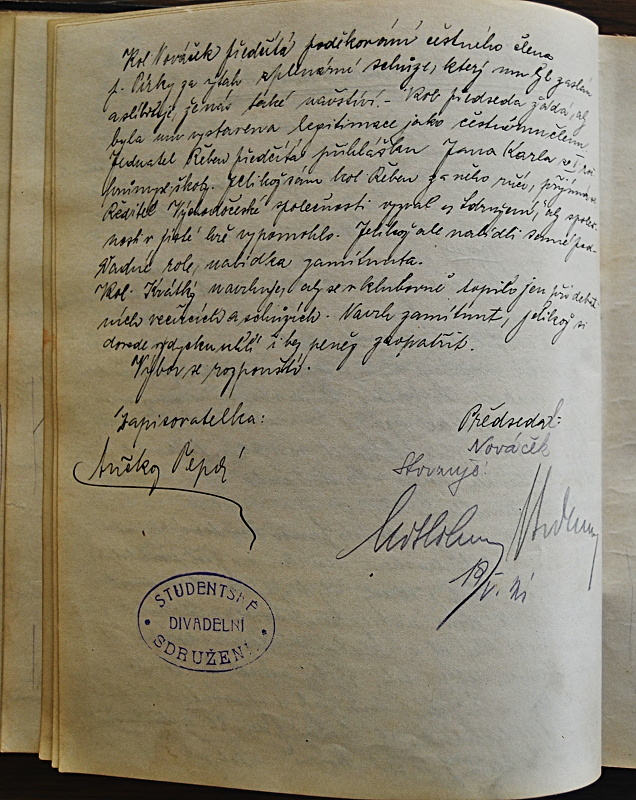 Kol. Nováček předčítá poděkování čestného člena
p. Pírky za ztah z plenární schůze, který mu byl zaslán
a slibuje, že nás také navštíví. – Kol. předseda žádá, aby
byla mu vystavena legitimace jako čestnému členu
Jednatel Řeben předčítá přihlášku Jana Karla
průmysl. školy. Jelikož sám kol. Řeben za něho ručí, přijímá se
Ředitel Východočeské společnosti vyzval sdružení, aby společ-
nosti v jisté hře vypomohlo. Jelikož ale nabídli samé pod-
řadné role, nabídka zamítnuta.
Kol. Krátký navrhuje, aby se v klubovně topilo jen při debat-
ních večírcích a schůzích. Návrh zamítnut, jelikož si
dovede výbor uhlí i bez peněz zaopatřit.
Výbor se rozpouští.
Zapisovatelka:
Předseda:
Nováček
Ančka Pepří
Srovnejs!
18/V. 21
STUDENTSKÉ
DIVADELNÍ
SDRUŽENÍ